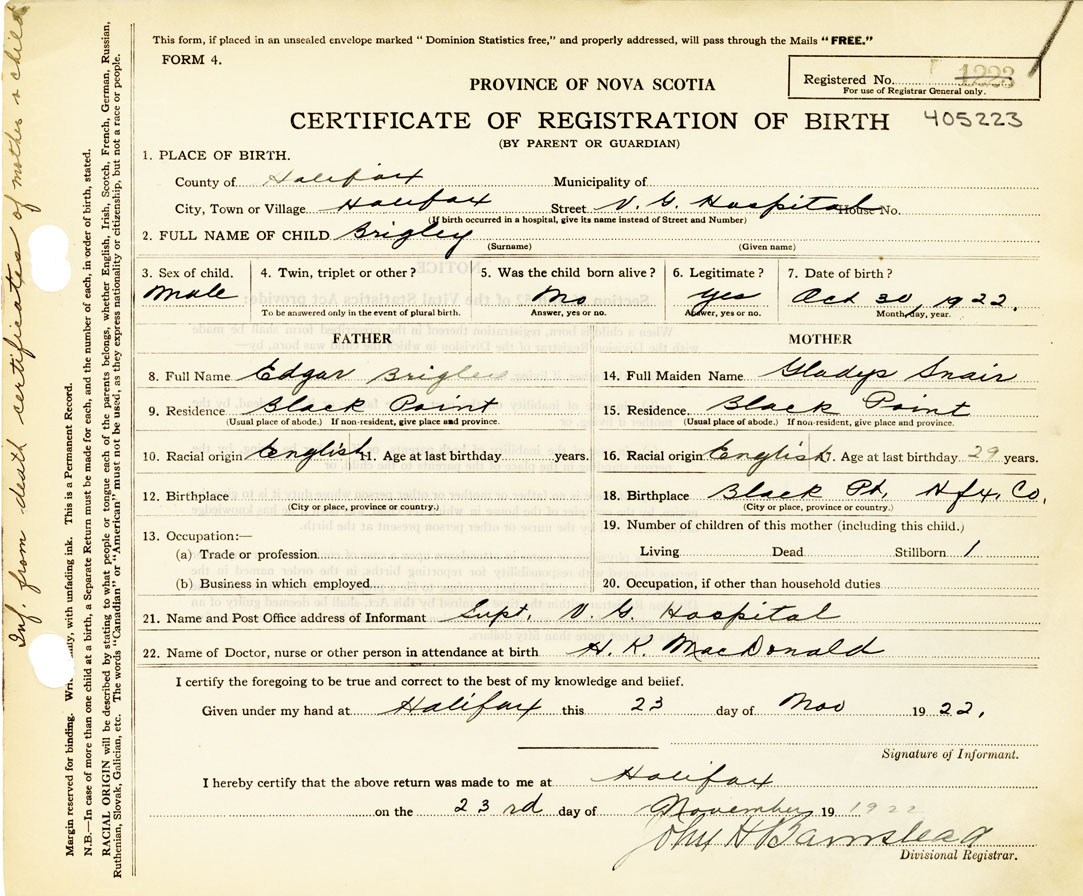 This form, if placed in an unsealed envelope marked "Dominion Statistics free," and properly addressed, will pass through the Mails "FREE."
FORM 4.
Registered No. 1223
For use of Registrar General only.
PROVINCE OF NOVA SCOTIA
CERTIFICATE OF REGISTRATION OF BIRTH 405223
(BY PARENT OR GUARDIAN)
1. PLACE OF BIRTH.
County of Halifax Municipality of
City, Town or Village Halifax Street V. G. Hospital House No.
(If birth occurred in a hospital, give its name instead of Street and Number)
2. FULL NAME OF CHILD Brigley
(Surname) (Given name)
3. Sex of child. 4. Twin, triplet or other? 5. Was the child born alive? 6. Legitimate? 7. Date of birth?
Male No Yes Oct 30, 1922.
To be answered only in the event of plural birth. Answer, yes or no. Answer, yes or no. Month, day, year.
FATHER MOTHER
8. Full Name Edgar Brigley 14. Full Maiden Name Gladys Snair
9. Residence Black Point 15. Residence Black Point
(Usual place of abode.) If non-resident, give place and province. (Usual place of abode.) If non-resident, give place and province.
10. Racial origin English 11. Age at last birthday years. 16. Racial origin English 17. Age at last birthday 29 years.
12. Birthplace 18. Birthplace Black Pt. Hfx. Co.
(City or place, province or country.) (City or place, province or country.)
13. Occupation:— 19. Number of children of this mother (including this child.)
(a) Trade or profession Living Dead Stillborn 1
(b) Business in which employed 20. Occupation, if other than household duties
21. Name and Post Office address of Informant Supt. V. G. Hospital
22. Name of Doctor, nurse or other person in attendance at birth H. K. MacDonald
I certify the foregoing to be true and correct to the best of my knowledge and belief.
Given under my hand at Halifax this 23 day of Nov 1922.
Signature of Informant.
I hereby certify that the above return was made to me at Halifax
on the 23rd day of November 19 1922
John H Barnstead
Divisional Registrar.
Inf. from death certificates of mother & child
Margin reserved for binding. with unfading ink. This is a Permanent Record.
N.B.—In case of more than one child at a birth, a Separate Return must be made for each, and the number of each, in order of birth, stated.
RACIAL ORIGIN will be described by stating to what people or tongue each of the parents belongs, whether English, Irish, Scotch, French, German, Russian,
Ruthenian, Slovak, Galician, etc. The words "Canadian" or "American" must not be used, as they express nationality or citizenship, but not a race or people.